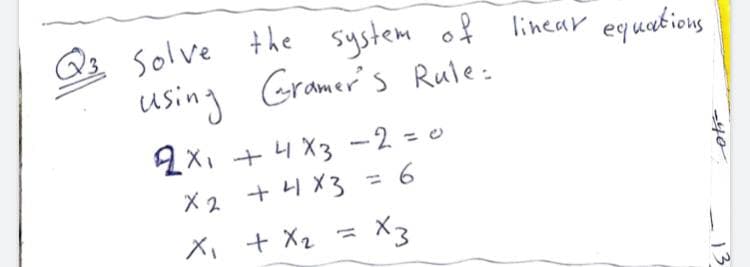 Q3 Solve the system of linear equations
using Cramer's Rule:
2x₁ + 4x₃ - 2 = 0
x₂ + 4x₃ = 6
x₁ + x₂ = x₃
-40
13